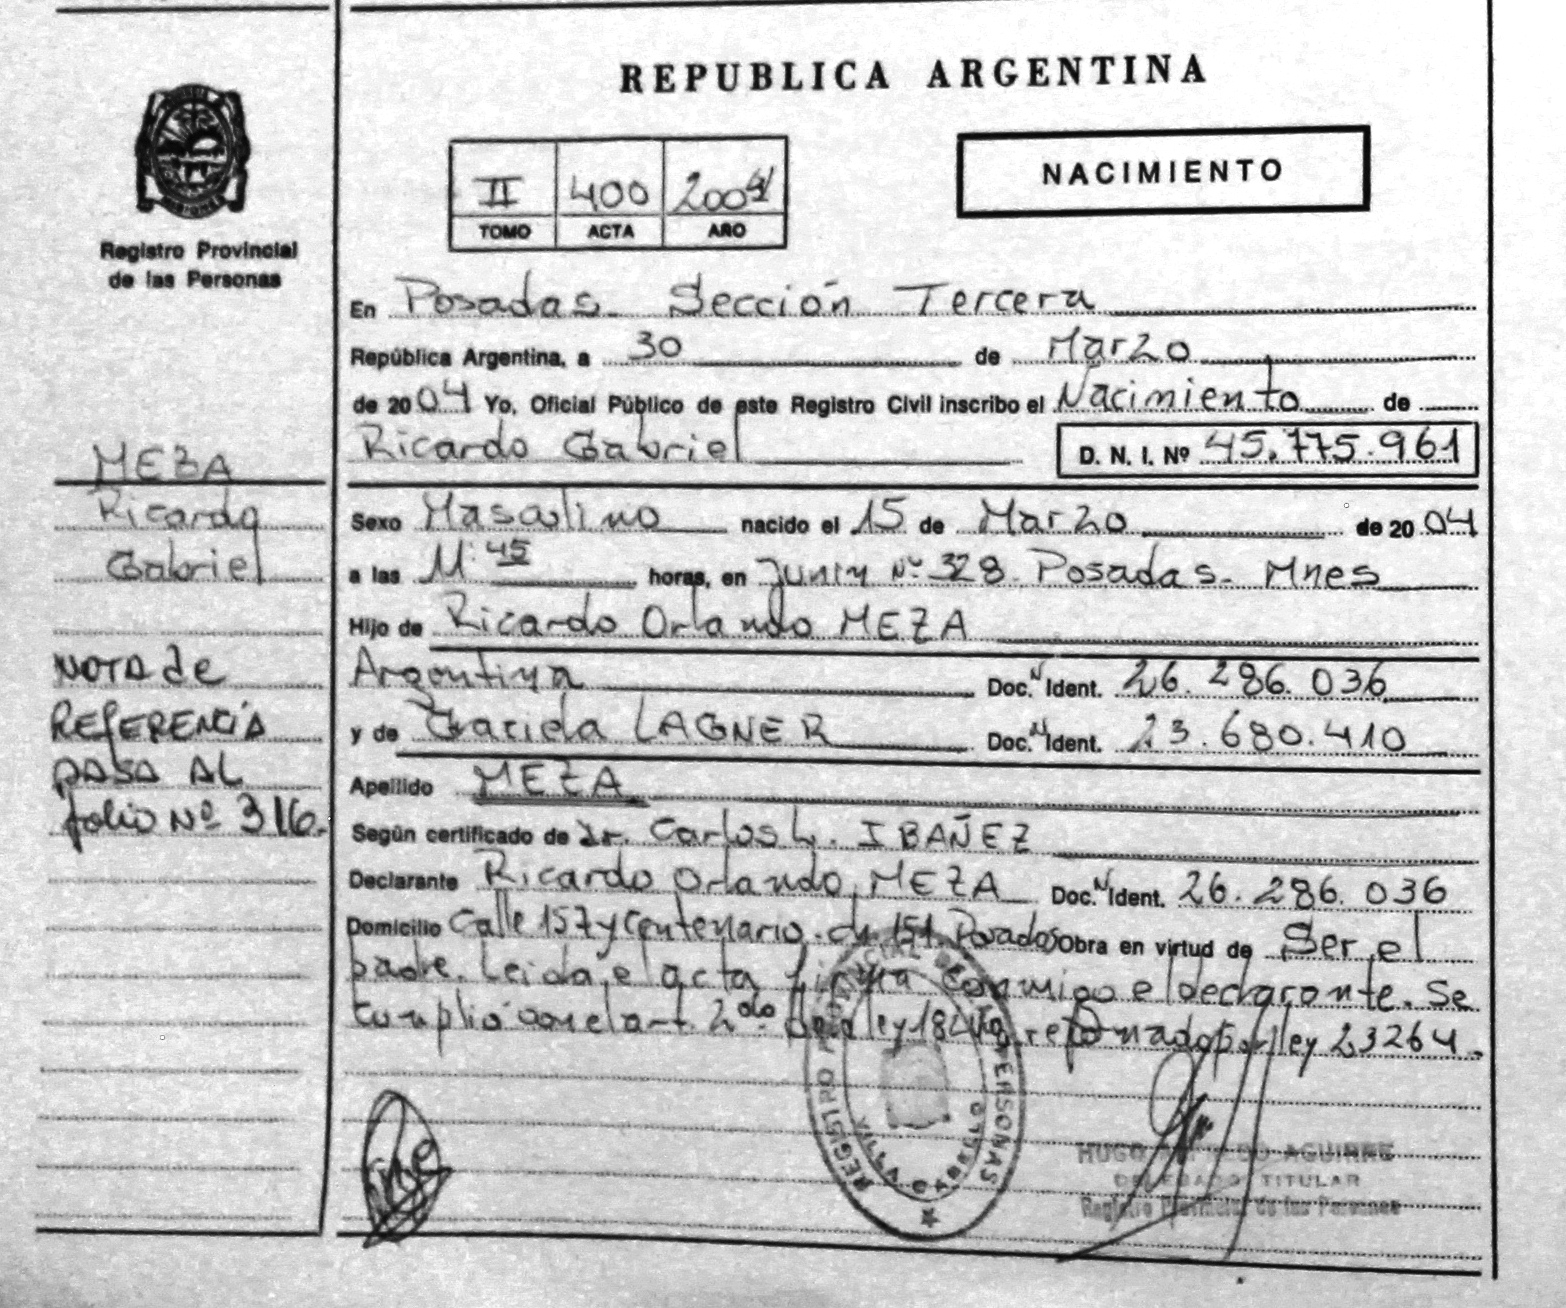 REPUBLICA ARGENTINA
NACIMIENTO
II 400 2004
TOMO ACTA AÑO
Registro Provincial
de las Personas
En Posadas. Sección Tercera
República Argentina, a 30 de Marzo
de 2004 Yo, Oficial Público de este Registro Civil inscribo el Nacimiento de
Ricardo Gabriel D. N. I. Nº 45.775.961
MEZA
Ricardo
Gabriel
Sexo Masculino nacido el 15 de Marzo de 2004
a las 11:45 horas, en Junin Nº 328. Posadas. Mnes
Hijo de Ricardo Orlando MEZA
Argentina Doc. N Ident. 26.286.036
y de Graciela LAGNER Doc. N Ident. 23.680.410
Apellido MEZA
Según certificado de Dr. Carlos L. IBAÑEZ
Declarante Ricardo Orlando MEZA Doc. N Ident. 26.286.036
Domicilio Calle 157 y Centenario. ch 151. Posadas Obra en virtud de Ser el
padre. Leida el acta firma conmigo el declarante. Se
cumplió con el art. 2do. de la ley reformado por ley 23264.
NOTA de
REFERENCIA
PASA AL
folio Nº 316.
REGISTRO PROVINCIAL DE LAS PERSONAS
VILLA CABELLO
HUGO AGUIRRE
DELEGADO TITULAR
Registro Provincial de las Personas